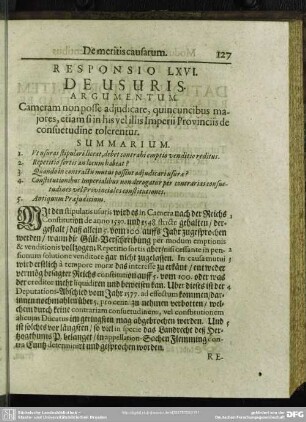 De meritis causarum. 127
RESPONSIO LXVI.
DE USURIS.
ARGUMENTUM.
Cameram non posse adjudicare, quincuncibus ma-
jores, etiam si in his vel illis Imperii Provinciis de
consuetudine tolerentur.
SUMMARIUM.
1. Ut usuras stipulari liceat, debet contrahi emptio venditio reditus.
2. Repetitio sortis an locum habeat?
3. Quando in contractu mutui possint adjudicari usuræ?
4. Constitutionibus Imperialibus non derogatur per contrarias consue-
tudines vel Provinciales constitutiones.
5. Antiquum Præjudicium.
den stipulatis usuris wird es in Camera nach der Reichs
Constitution de anno 1530. und 1548 stricte gehalten, der-
gestalt, daß allein 5. vom 100. auffs Jahr zugesprochen
werden, wann die Gült-Verschreibung per modum emptionis
& venditionis vollzogen. Repetitio sortis aber (nisi cessante in pen-
sionum solutione venditore) gar nicht zugelassen. In causa mutui
wird erstlich à tempore moræ das interesse zu erkänt,
vermög besagter Reichs constitution auff 5. vom 100. oder was
der creditor mittl liquidiren und beweisen kan. Uber dieses ist
Deputation-Abschied vom Jahr 1577. ad effectum kommen, dar-
innen nochmahlen über 5. pro cent. zu nehmen verbotten,
chen durch keine contrariam consuetudinem, vel constitutionem
alicujus Ducatus im geringsten mag abgebrochen werden. Und
ist solches vor längsten, so viel in specie das Landrecht des Her-
zogthums P. belanget, in appellation-Sachen
contra determinirt und gesprochen worden.
R E.